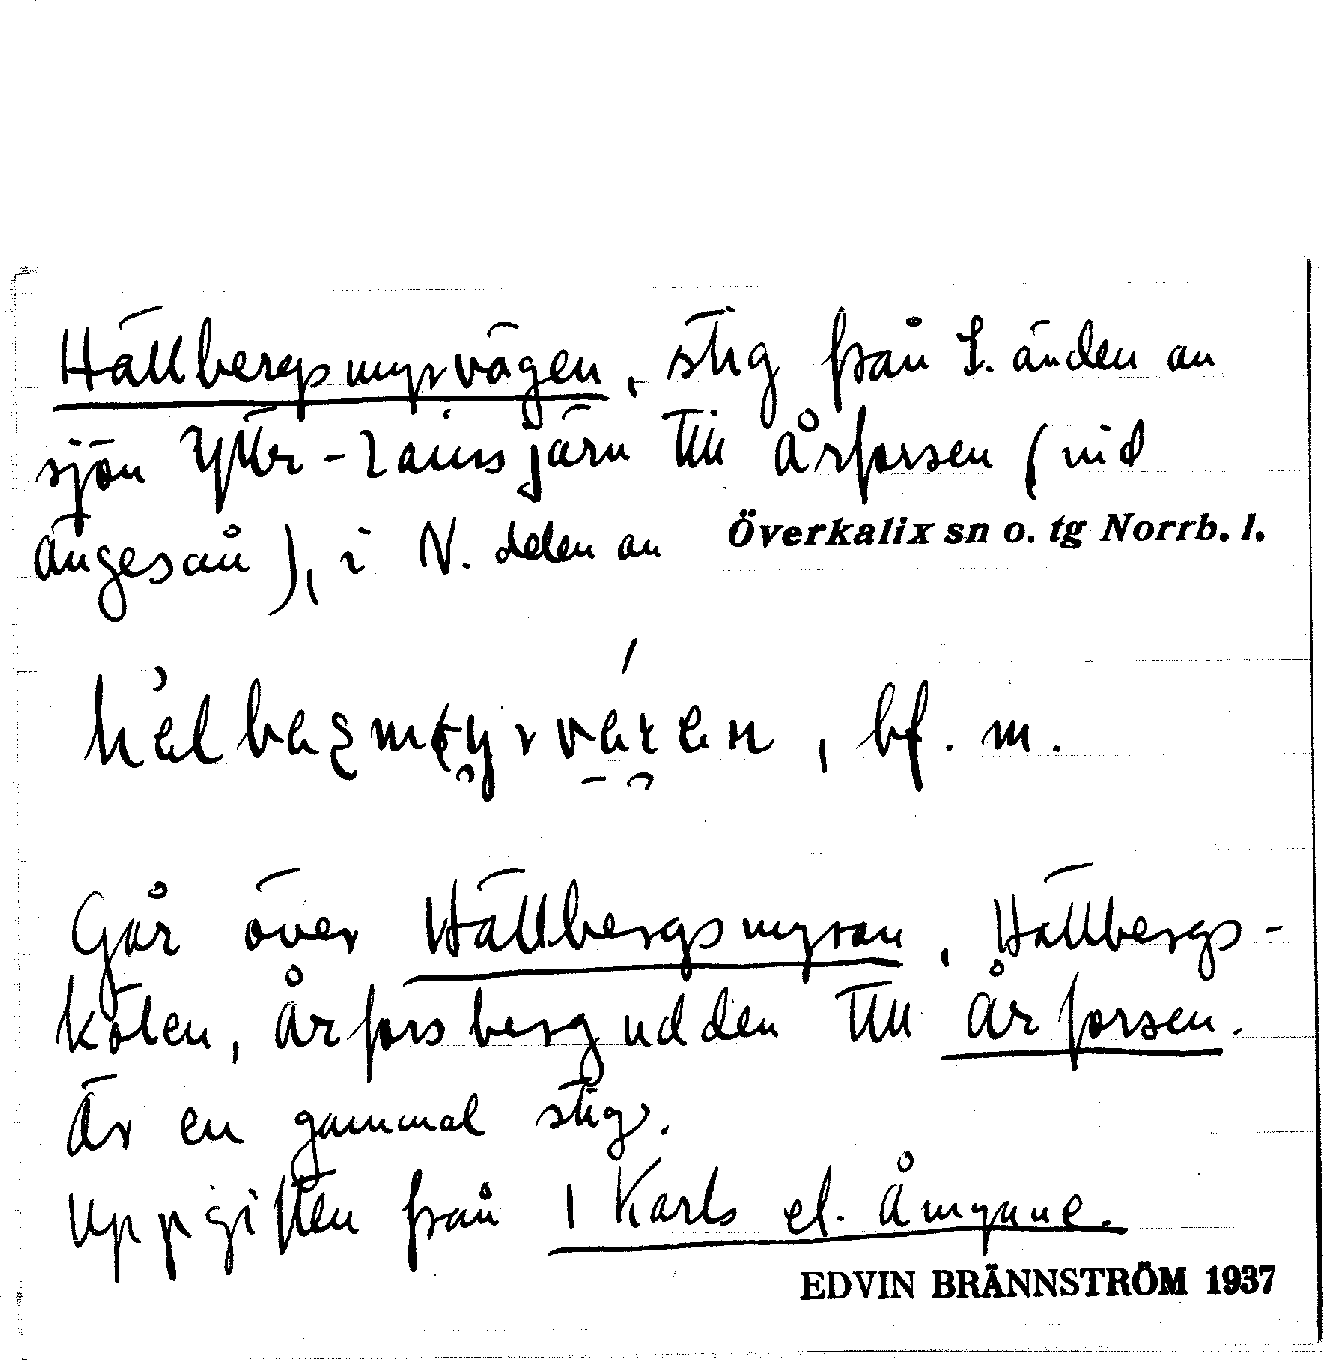 Hällbergsmyrvägen, stig från S. änden av
sjön Ytter-Lainsjärv till Årforsen (vid
Ängesån), i N. delen av Överkalix sn o. tg Norrb. l.
, bf. m.
Går över Hällbergsmyran, Hällbergs-
kölen, Årforsbergudden till Årforsen.
Är en gammal stig.
Uppgiften från 1 Karls el. Åmyane.
EDVIN BRÄNNSTRÖM 1937